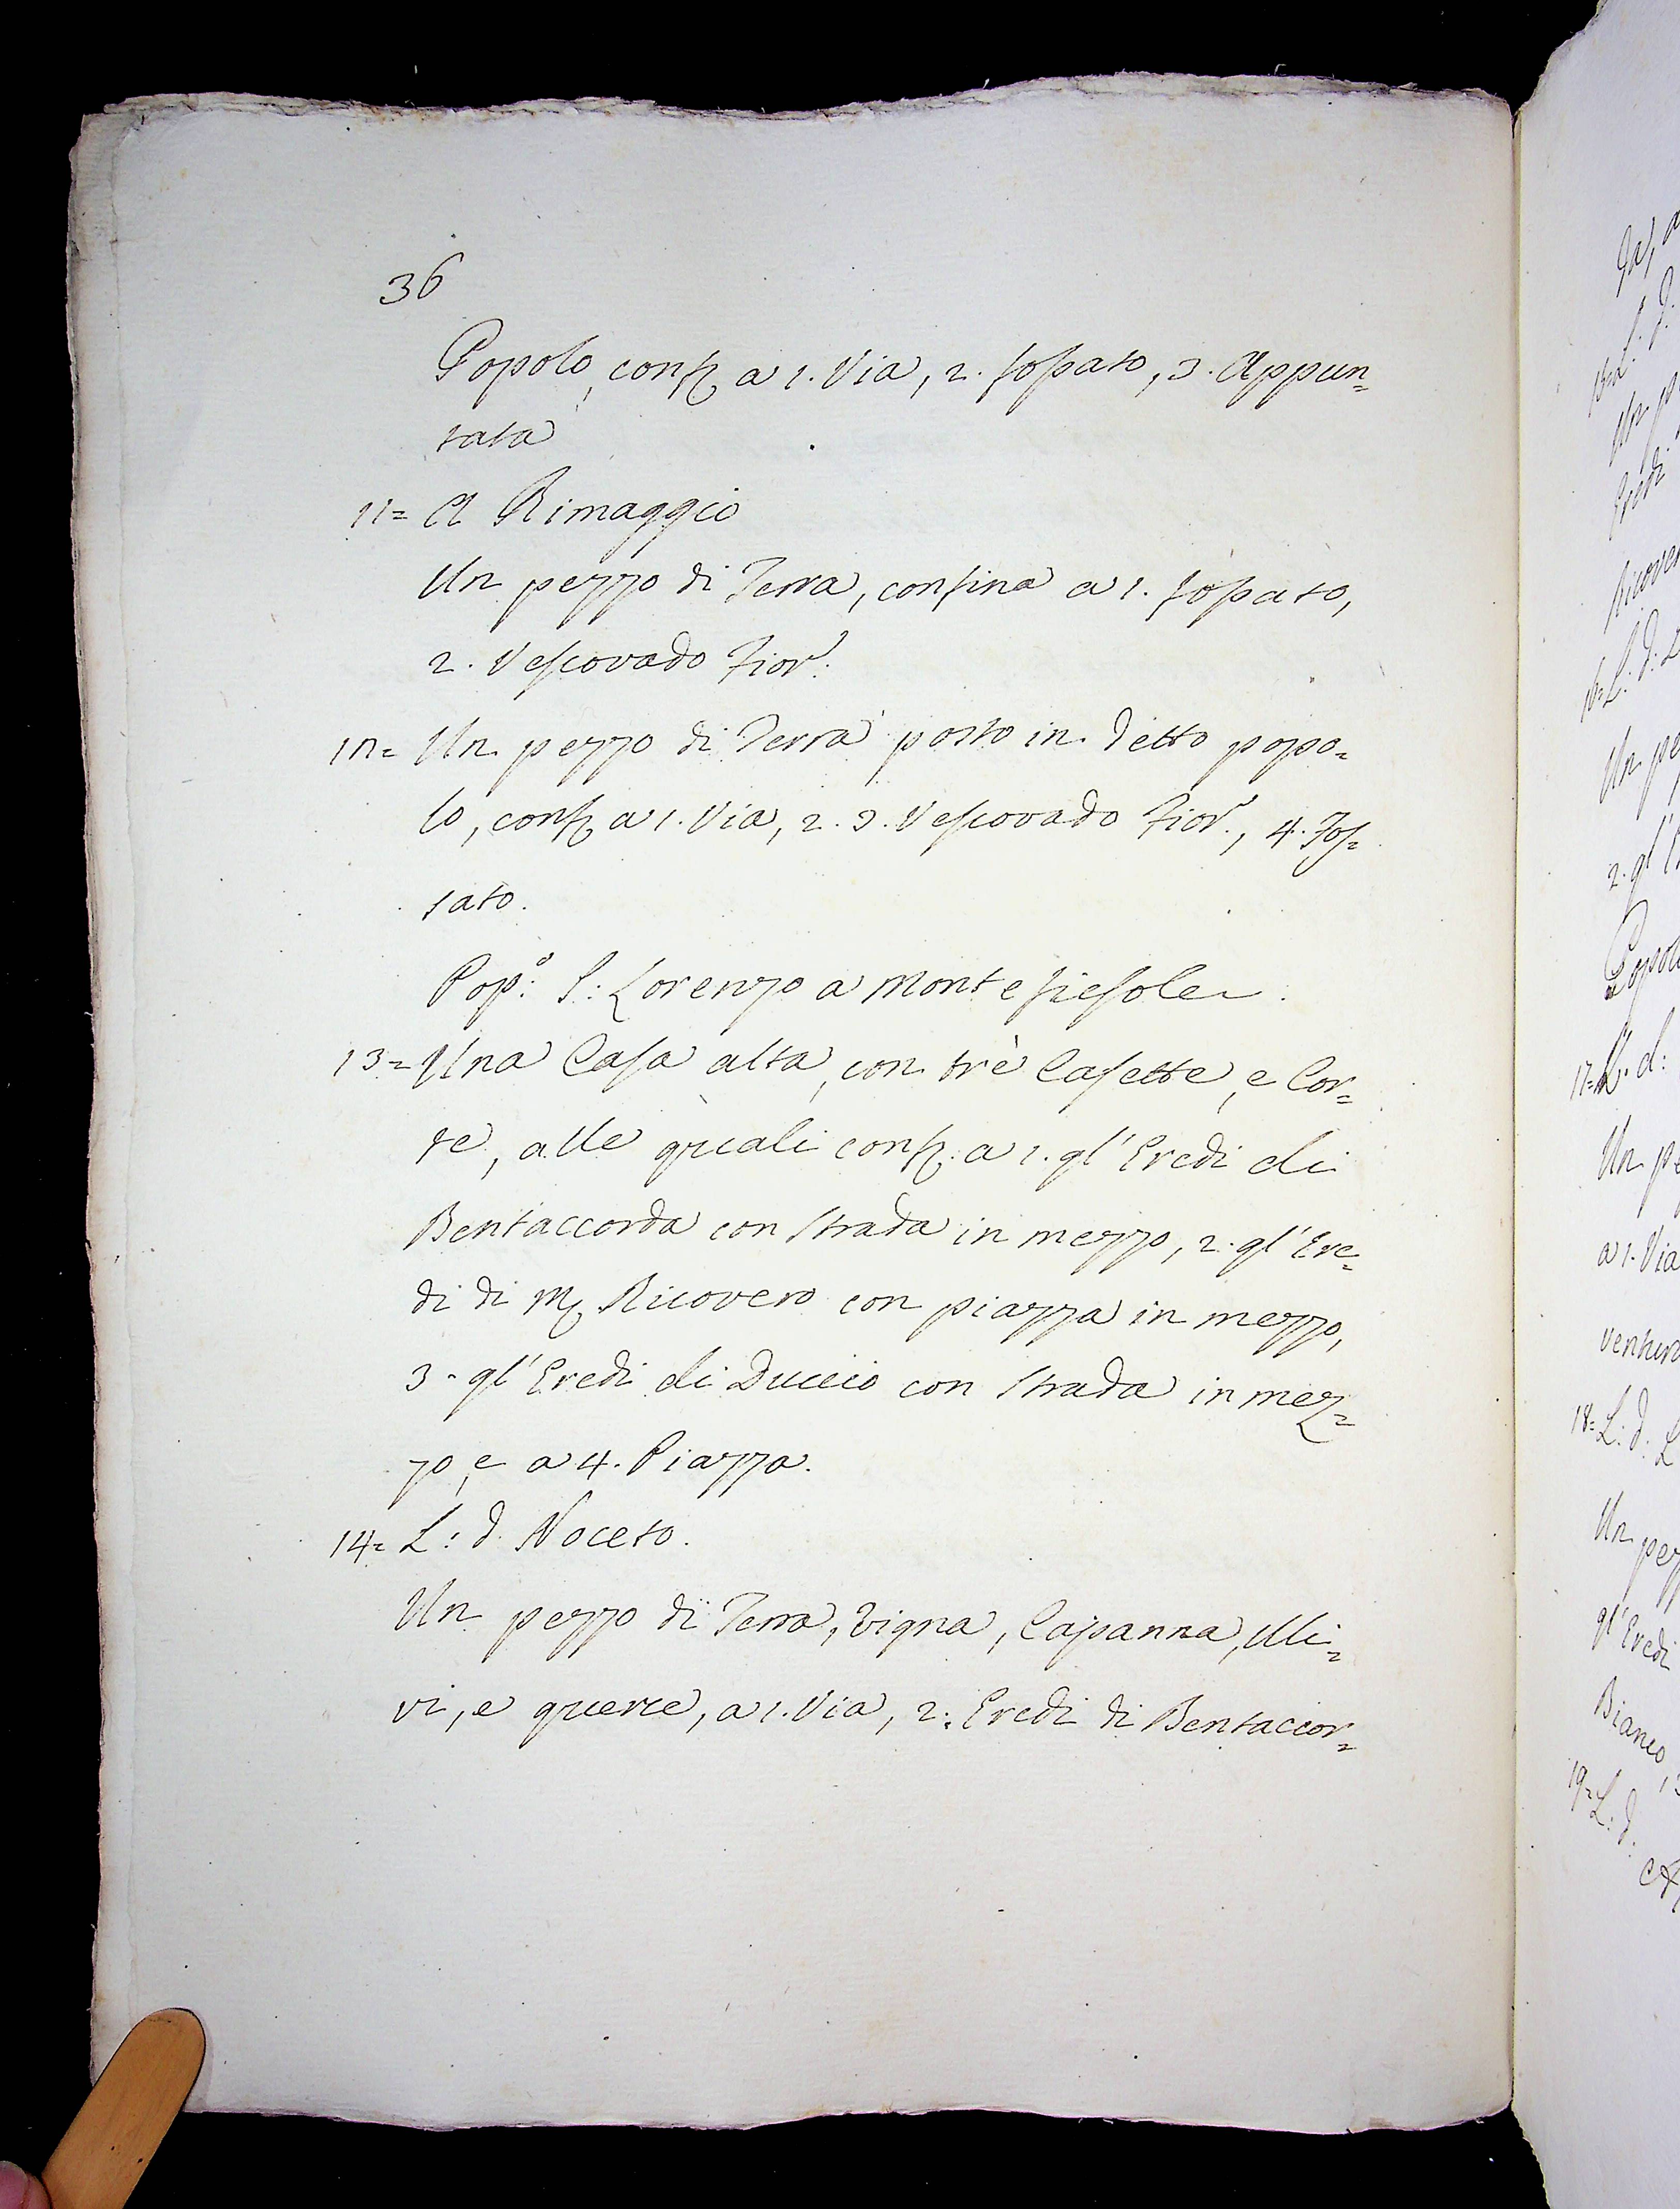 36
Popolo, conf. a 1. Via, 2. fossato, 3. Appun=
tata
11= A Rimaggio
Un pezzo di Terra, confina a 1. fossato,
2. Vescovado Fior:
12= Un pezzo di Terra posto in detto popo=
lo, conf. a 1. Via, 2. 3. Vescovado Fior., 4. Fos=
sato.
Pop:o S: Lorenzo a Monte fiesole.
13= Una Casa alta, con trè Casette, e Cor=
te, alle quali conf: a 1. gl' Eredi di
Bentaccorda con strada in mezzo, 2. gl' Ere=
di di M. Ricovero con piazza in mezzo,
3. gl' Eredi di Duccio con strada in mez=
zo, e a 4. Piazza.
14= L: d. Noceto.
Un pezzo di Terra, Vigna, Capanna, Uli=
vi, e querce, a 1. Via, 2. Eredi di Bentaccor=
Un pe
Eredi
2. gl'
Popolo
17= L. d:
Un pe
a 1. Via
18= L: d: L
Un pez
gl' Eredi
Bianco,
19= L: d: